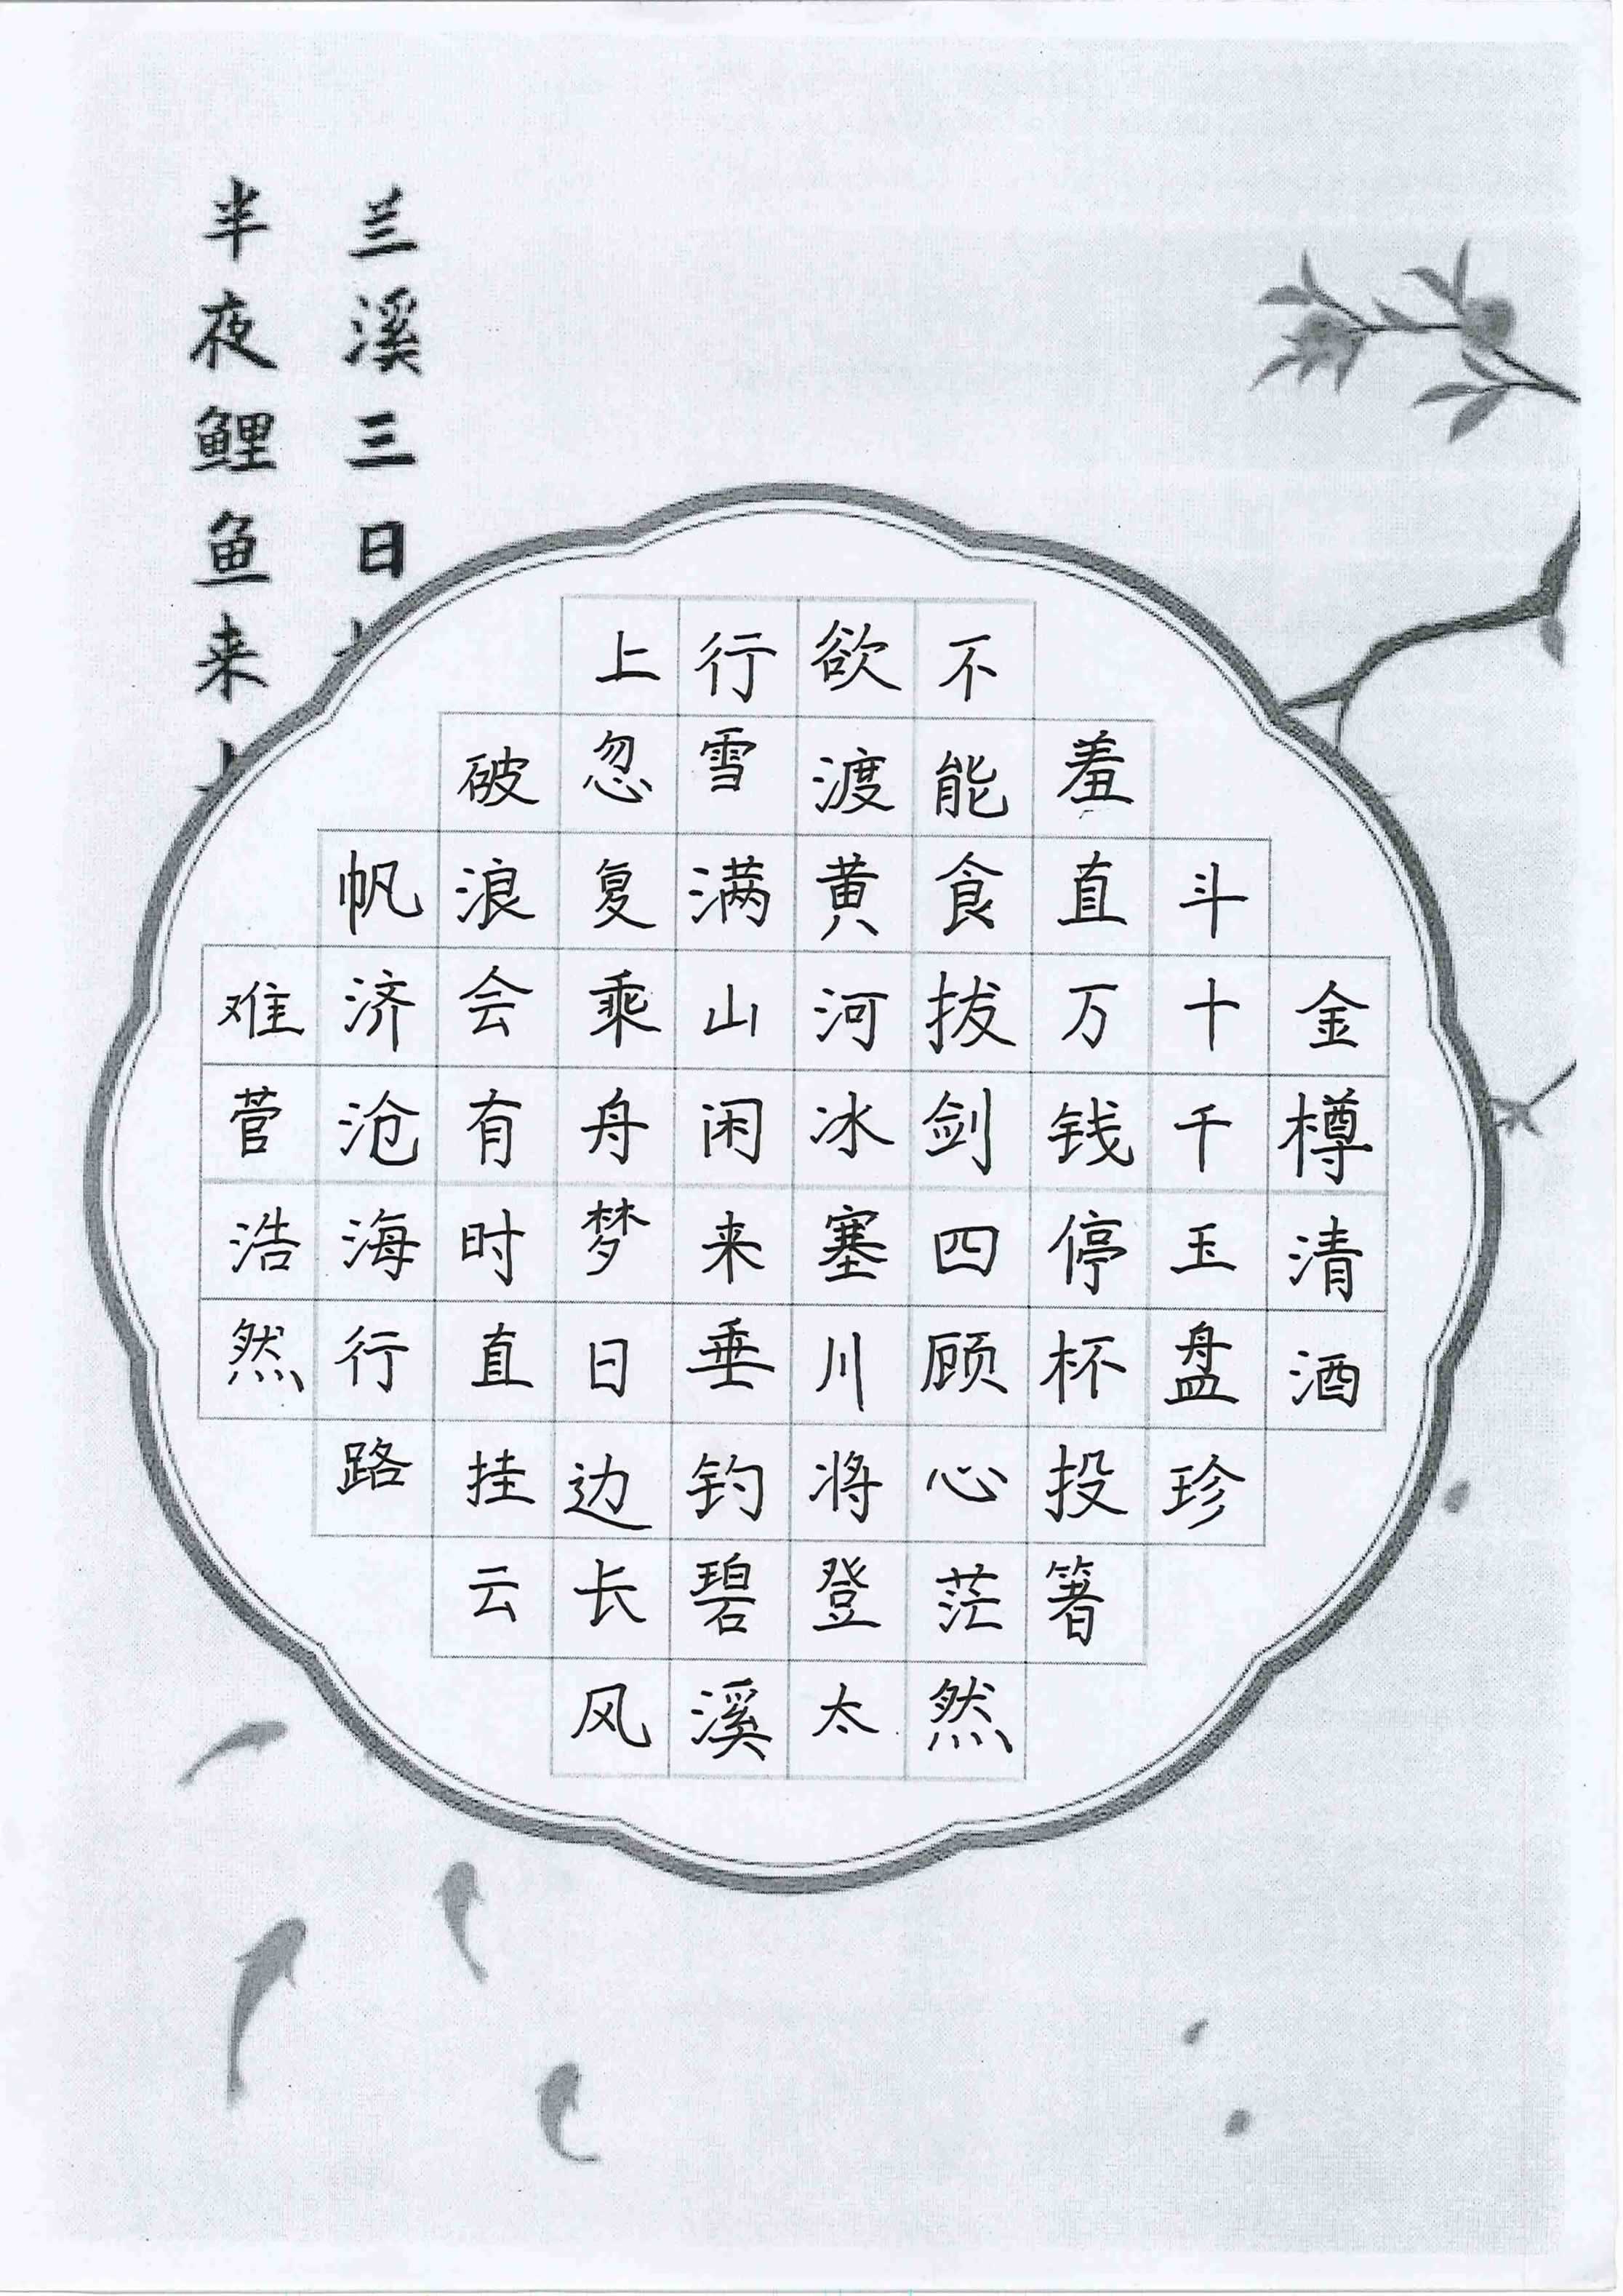 兰溪三日
半夜鲤鱼来
金樽清酒
斗十千玉盘珍
羞直万钱停杯投箸
不能食拔剑四顾心茫然
欲渡黄河冰塞川将登太
行雪满山闲来垂钓碧溪
上忽复乘舟梦日边长风
破浪会有时直挂云
帆济沧海行路
难菅浩然